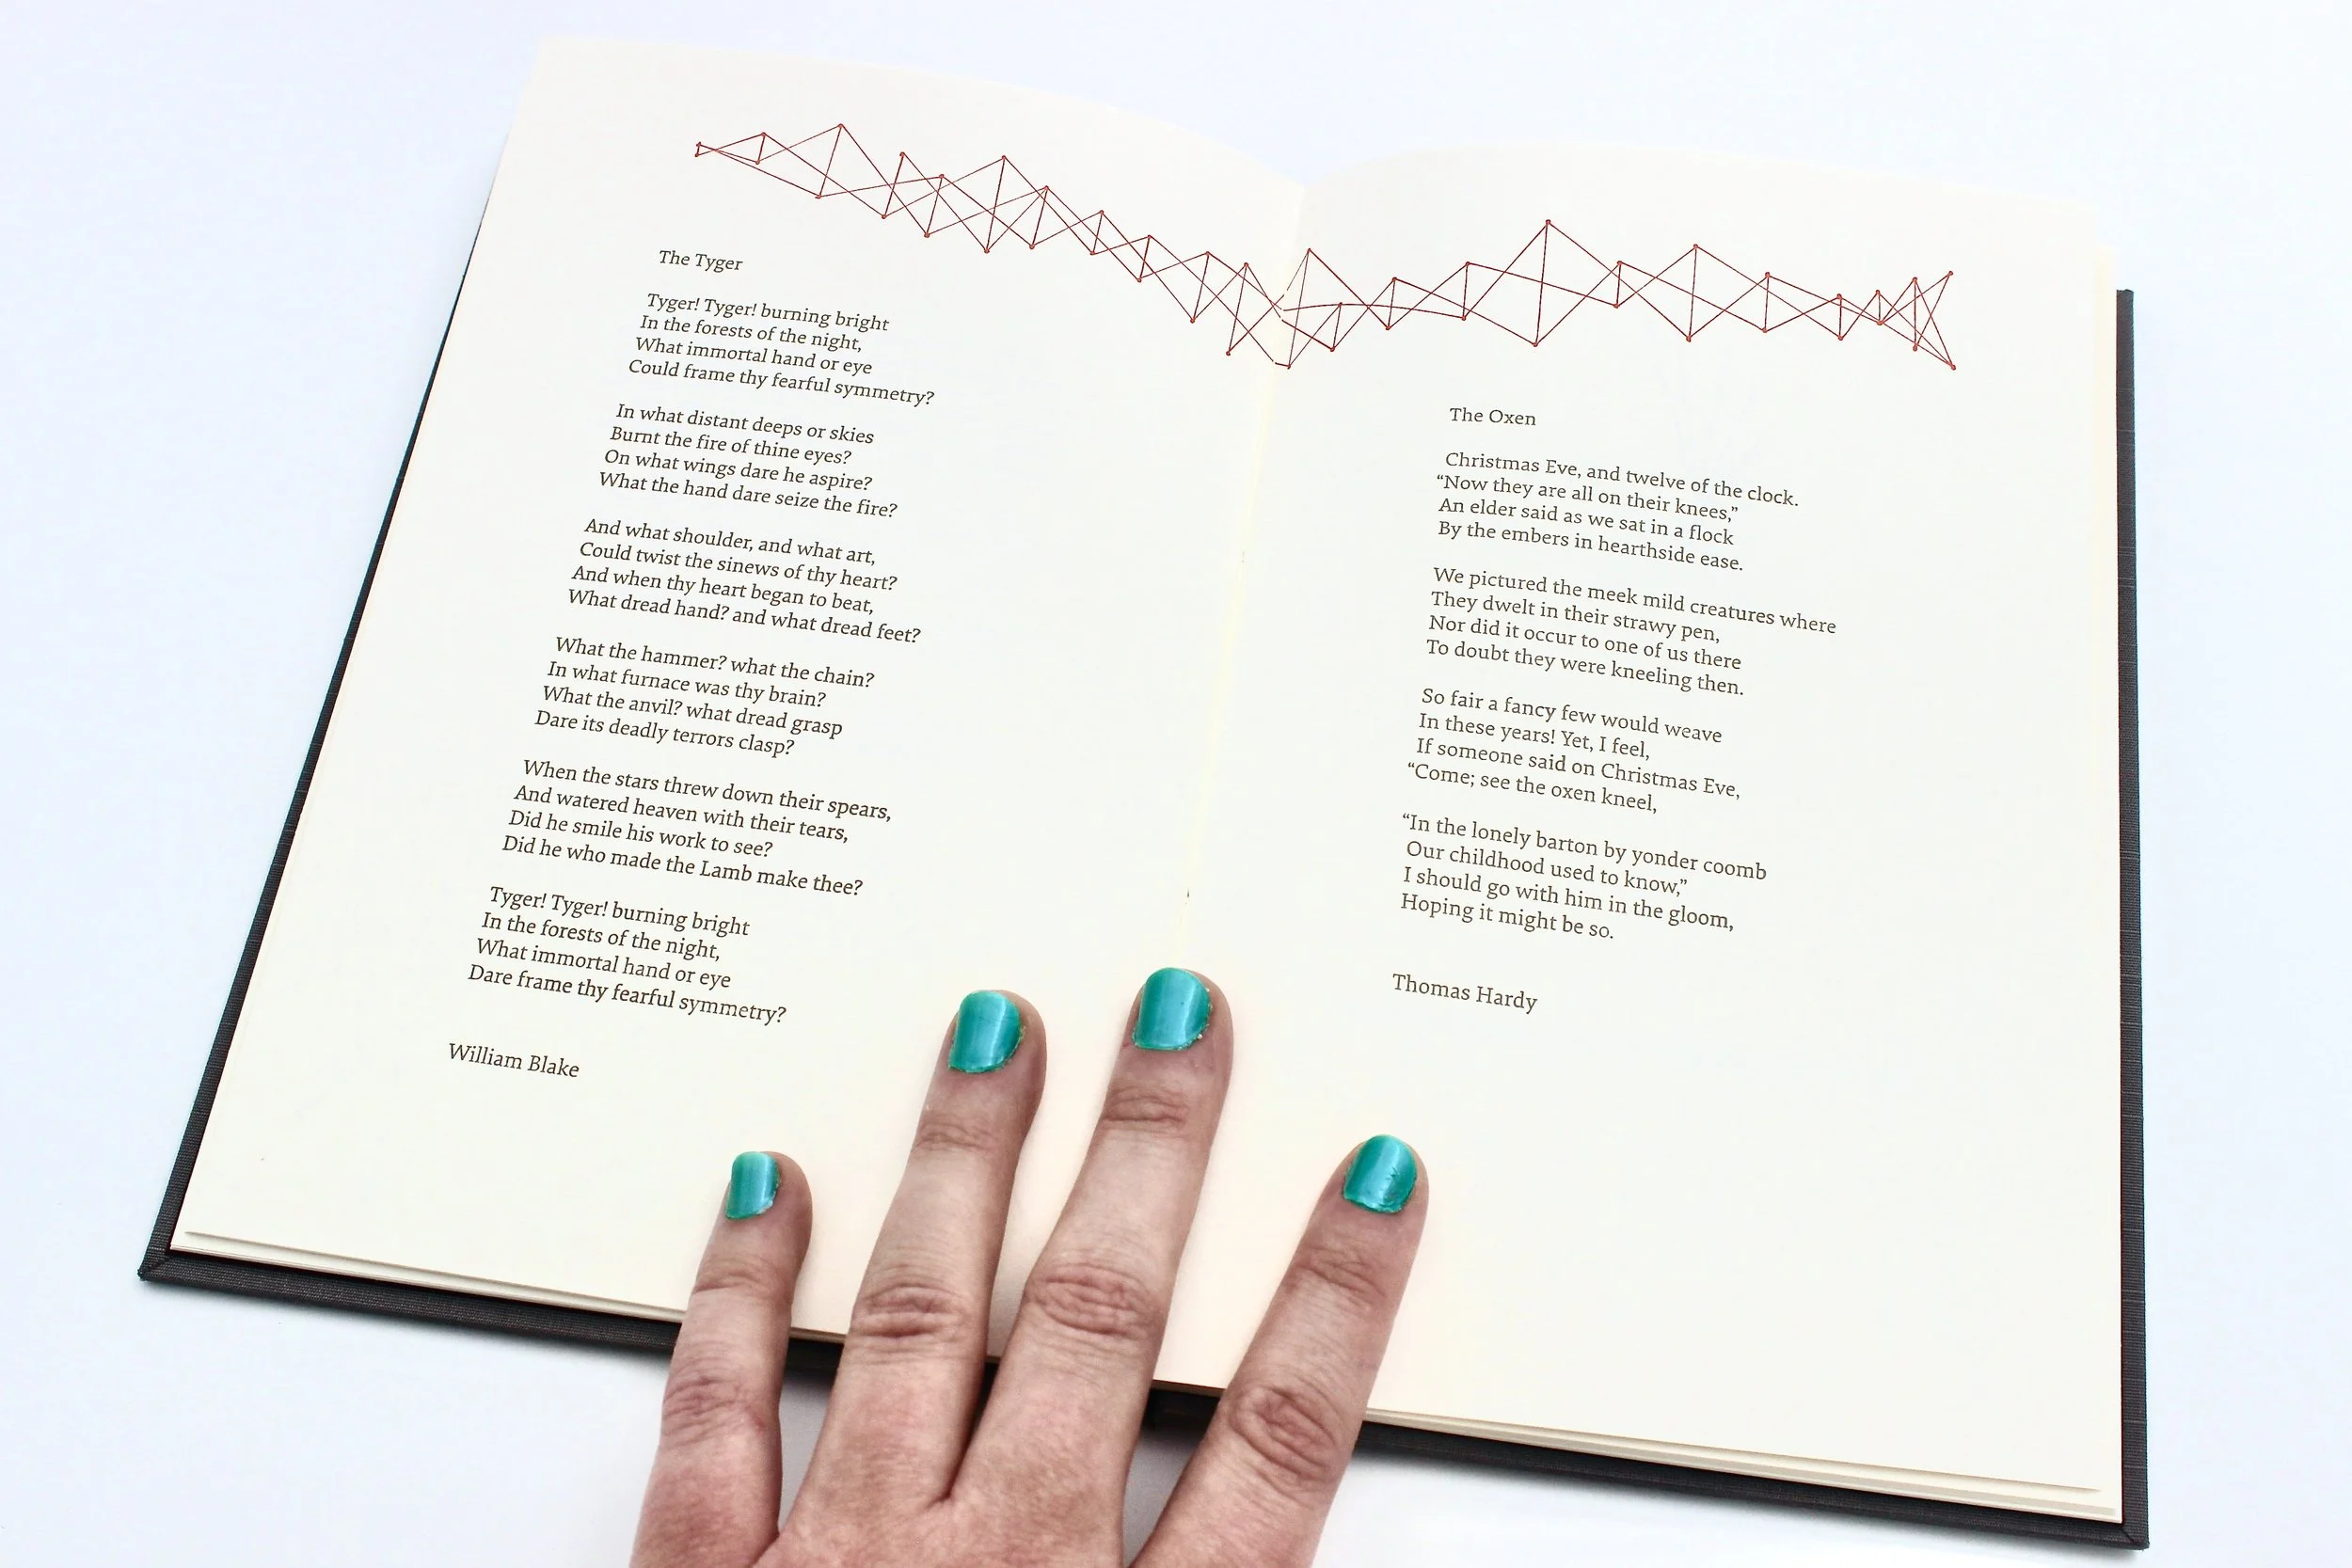 The Tyger
Tyger! Tyger! burning bright
In the forests of the night,
What immortal hand or eye
Could frame thy fearful symmetry?
In what distant deeps or skies
Burnt the fire of thine eyes?
On what wings dare he aspire?
What the hand dare seize the fire?
And what shoulder, and what art,
Could twist the sinews of thy heart?
And when thy heart began to beat,
What dread hand? and what dread feet?
What the hammer? what the chain?
In what furnace was thy brain?
What the anvil? what dread grasp
Dare its deadly terrors clasp?
When the stars threw down their spears,
And watered heaven with their tears,
Did he smile his work to see?
Did he who made the Lamb make thee?
Tyger! Tyger! burning bright
In the forests of the night,
What immortal hand or eye
Dare frame thy fearful symmetry?
William Blake
The Oxen
Christmas Eve, and twelve of the clock.
“Now they are all on their knees,”
An elder said as we sat in a flock
By the embers in hearthside ease.
We pictured the meek mild creatures where
They dwelt in their strawy pen,
Nor did it occur to one of us there
To doubt they were kneeling then.
So fair a fancy few would weave
In these years! Yet, I feel,
If someone said on Christmas Eve,
“Come; see the oxen kneel,
“In the lonely barton by yonder coomb
Our childhood used to know,”
I should go with him in the gloom,
Hoping it might be so.
Thomas Hardy